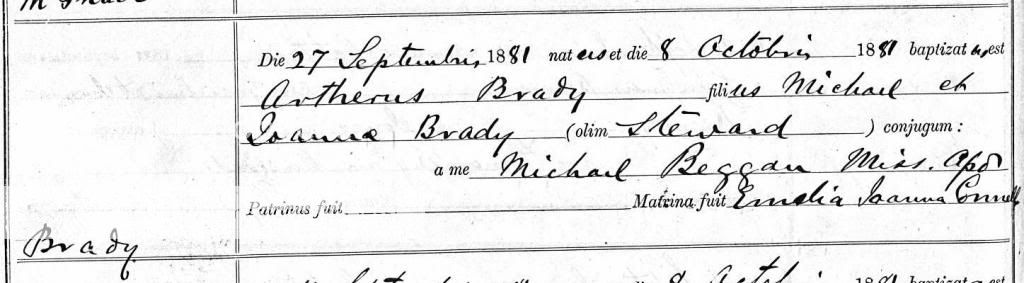 Die 27 Septembris 1881 natus et die 8 Octobris 1881 baptizatus est
Artherus Brady filius Michael et
Joannæ Brady (olim Steward) conjugum:
a me Michael Beggan Miss. Apos
Patrinus fuit Matrina fuit Emelia Joanna
Brady